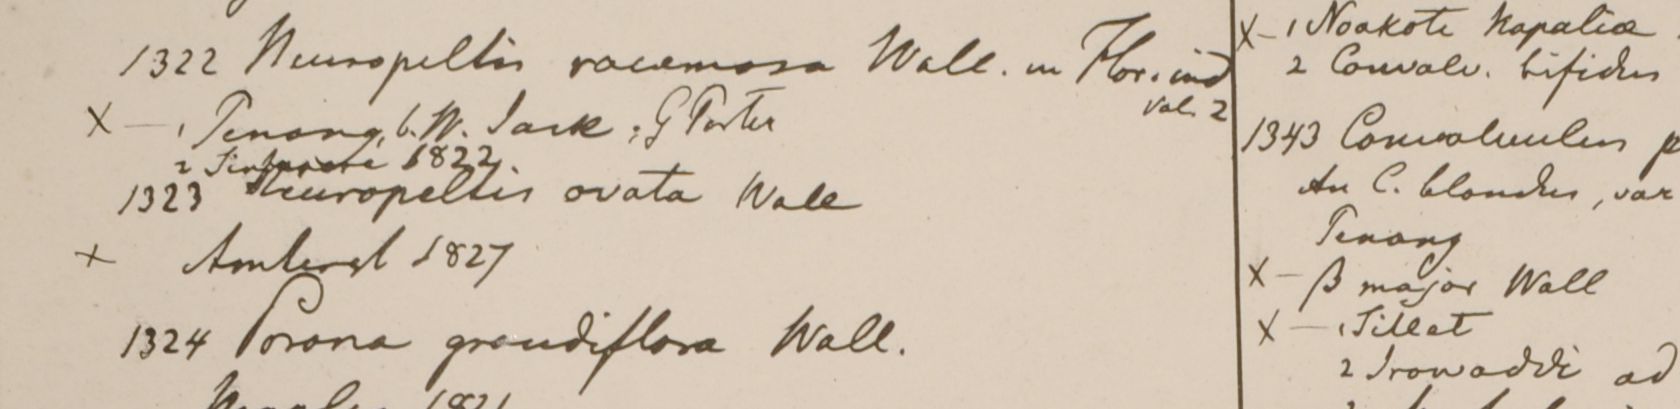 1322 Neuropeltis racemosa Wall. in Flor. ind
Val. 2
X — 1 Penang, b. W. Jack ; G Porter
2 Singapore 1822
1323 Neuropeltis ovata Wall
x Amherst 1827
1324 Porana grandiflora Wall.
1821
X — 1 Noakote Napaliae
2 Convolv. bifidus
1343 Convolvulus p
An C. blandus, var
Penang
X — β major Wall
X — 1 Sillet
2 Irowaddi ad